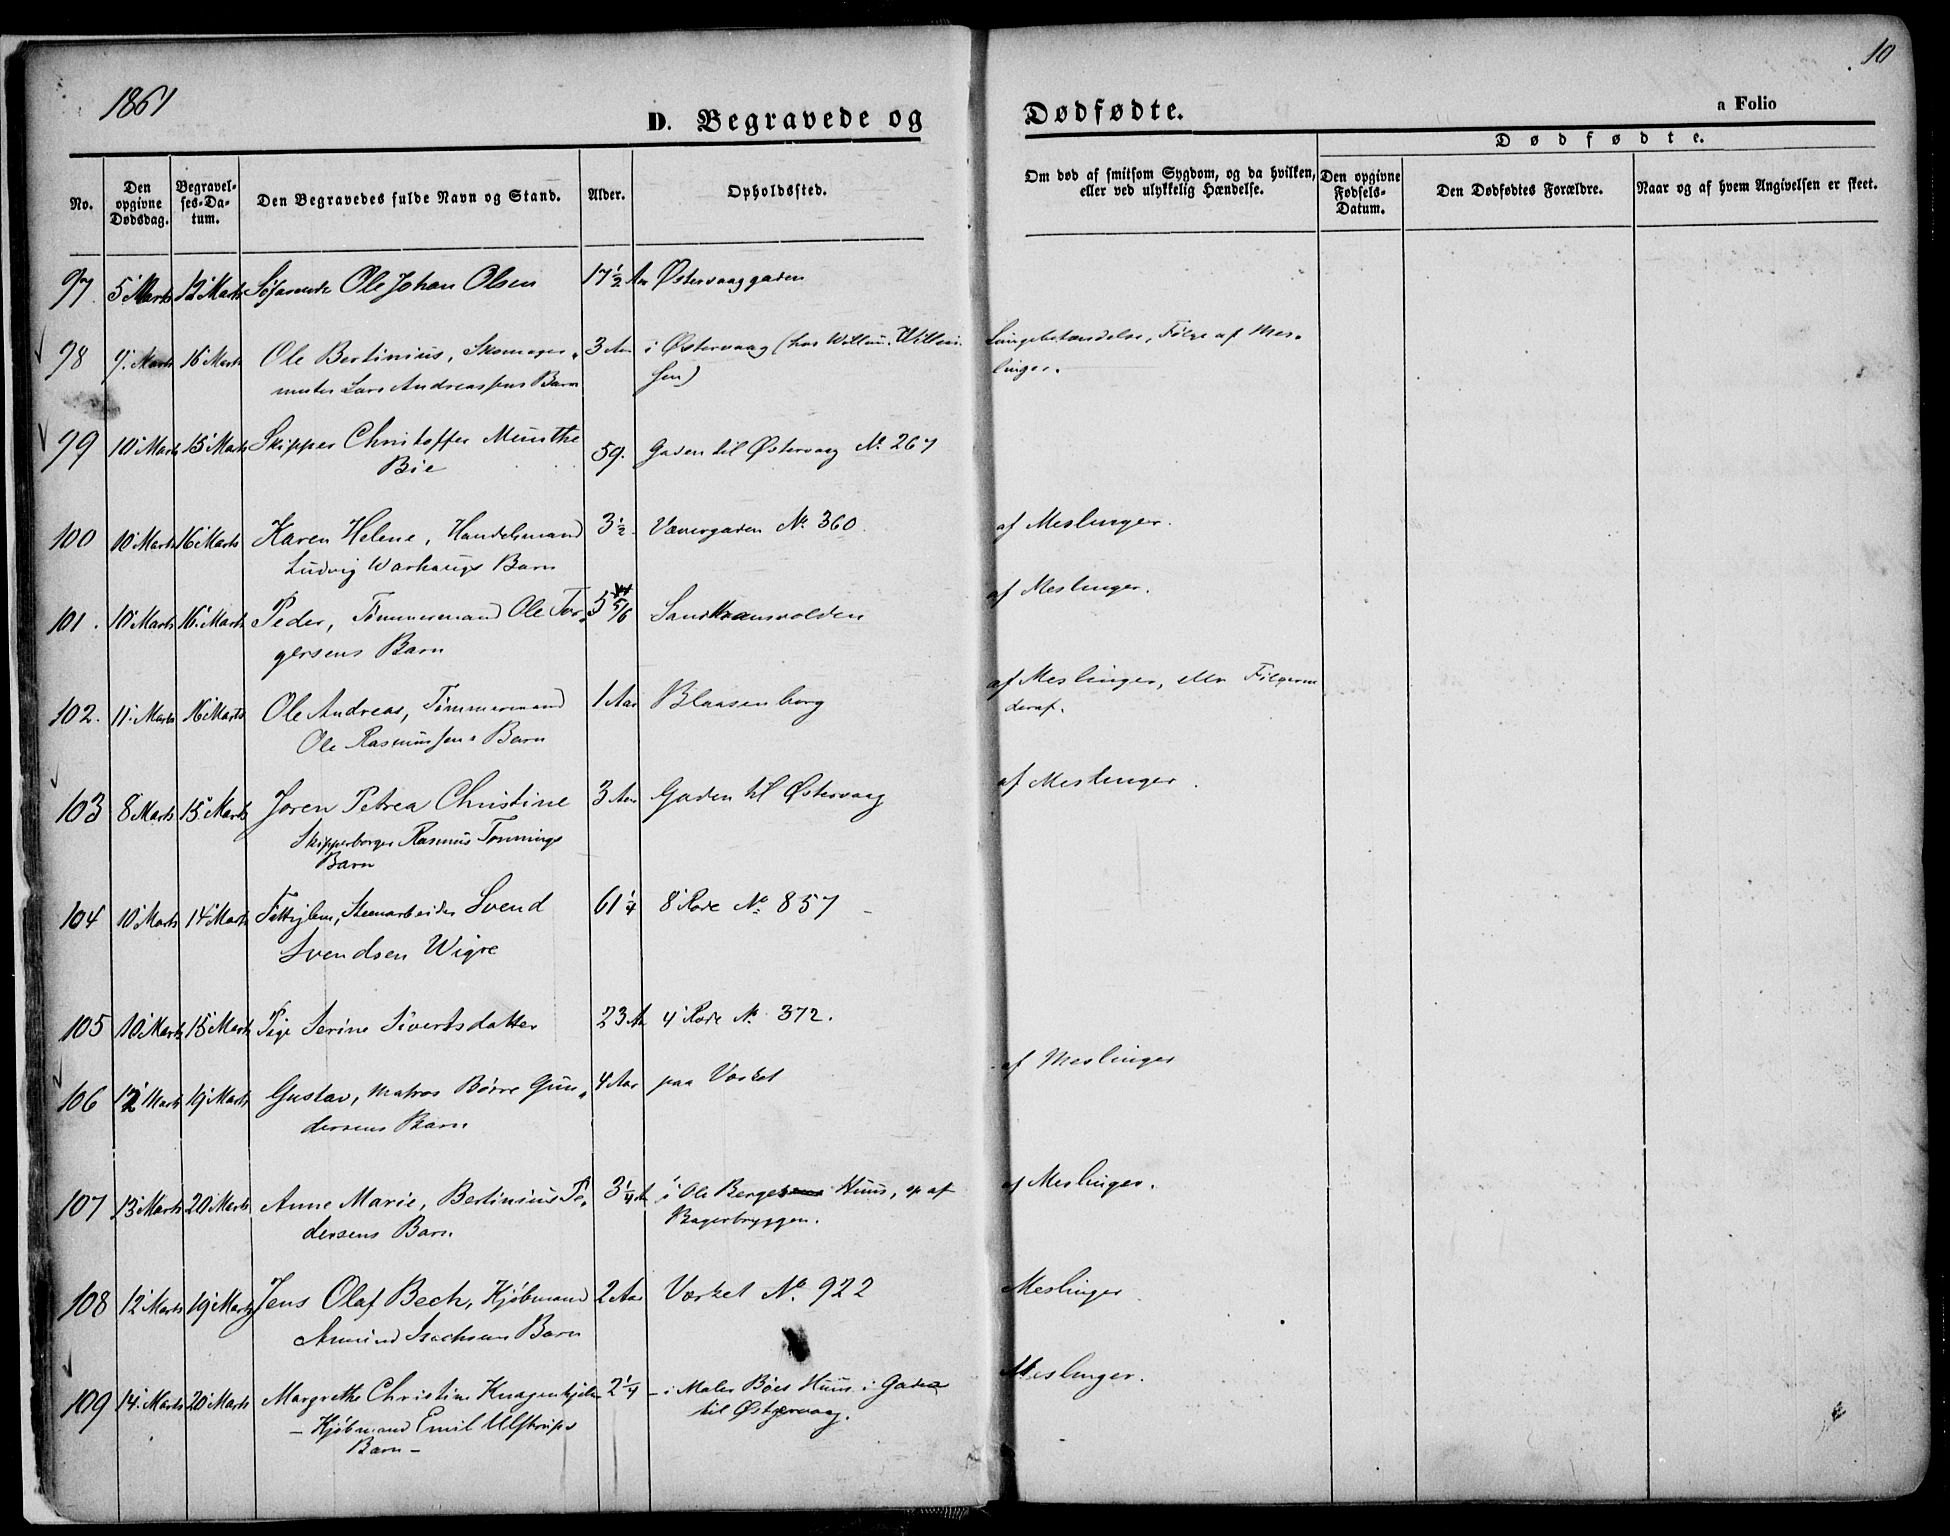 10
1861
D. Begravede og Dødfødte.
a Folio
Dødfødte.
No.
Den opgivne Dødsdag.
Begravelses-Datum.
Den Begravedes fulde Navn og Stand.
Alder.
Opholdssted.
Om død af smitsom Sygdom, og da hvilken, eller ved ulykkelig Hændelse.
Den opgivne Fødsels-Datum.
Den Dødfødtes Forældre.
Naar og af hvem Angivelsen er skeet.
97 5 Marts 12 Marts Søfarende Ole Johan Olsen 17 1/2 Aar Østervaaggaden
98 9. Marts 16 Marts Ole Bertinius, Skomager- 3 Aar i Østervaag (hos Willum Willum- Lungebetændelse, Følge af Mes-
mester Lars Andreassens Barn sen) linger.
99 10 Marts 15 Marts Skipper Christoffer Munthe 59. Gaden til Østervaag No. 267
Bie
100 10 Marts 16 Marts Karen Helene, Handelsmand 3 1/2 No. 360 af Meslinger.
Ludvig Warhaugs Barn
101. 10 Marts 16. Marts Peder, Tømmermand Ole Tor- 5 5/6 af Meslinger.
gersens Barn
102. 11. Marts 16 Marts Ole Andreas, Tømmermand 1 Aar Blaasenborg af Meslinger, eller Følgerne
Ole Rasmussens Barn deraf.
103 8 Marts 15 Marts Joren Petrea Christine 3 Aar Gaden til Østervaag af Meslinger.
Skipperborger Rasmus Tonnings
Barn
104 10 Marts 14 Marts Fattiglem, Steenarbeider Svend 61 1/4 8 Rode No. 857
Svendsen Wigre
105 10 Marts 15 Marts Pige Serine Sivertsdatter 23 Aar 4 Rode No. 372.
106 12 Marts 19 Marts Gustav, Matros Børre Gun- 4 Aar paa Værket af Meslinger
dersens Barn
107 13 Marts 20 Marts Anne Marie, Bertinius Pe- 3 1/4 A i Ole Berges Huus, op af af Meslinger.
dersens Barn Bagerbryggen.
108 12 Marts 19 Marts Jens Olaf Bech, Kjøbmand 2 Aar Værket No. 922 Meslinger
Amund Isachsens Barn
109 14. Marts 20 Marts Margrethe Christine Knagenhjelm 2 1/4 - i Maler Bøes Huus i Gaden Meslinger.
- Kjøbmand Emil Ulstrups til Østervaag.
Barn -